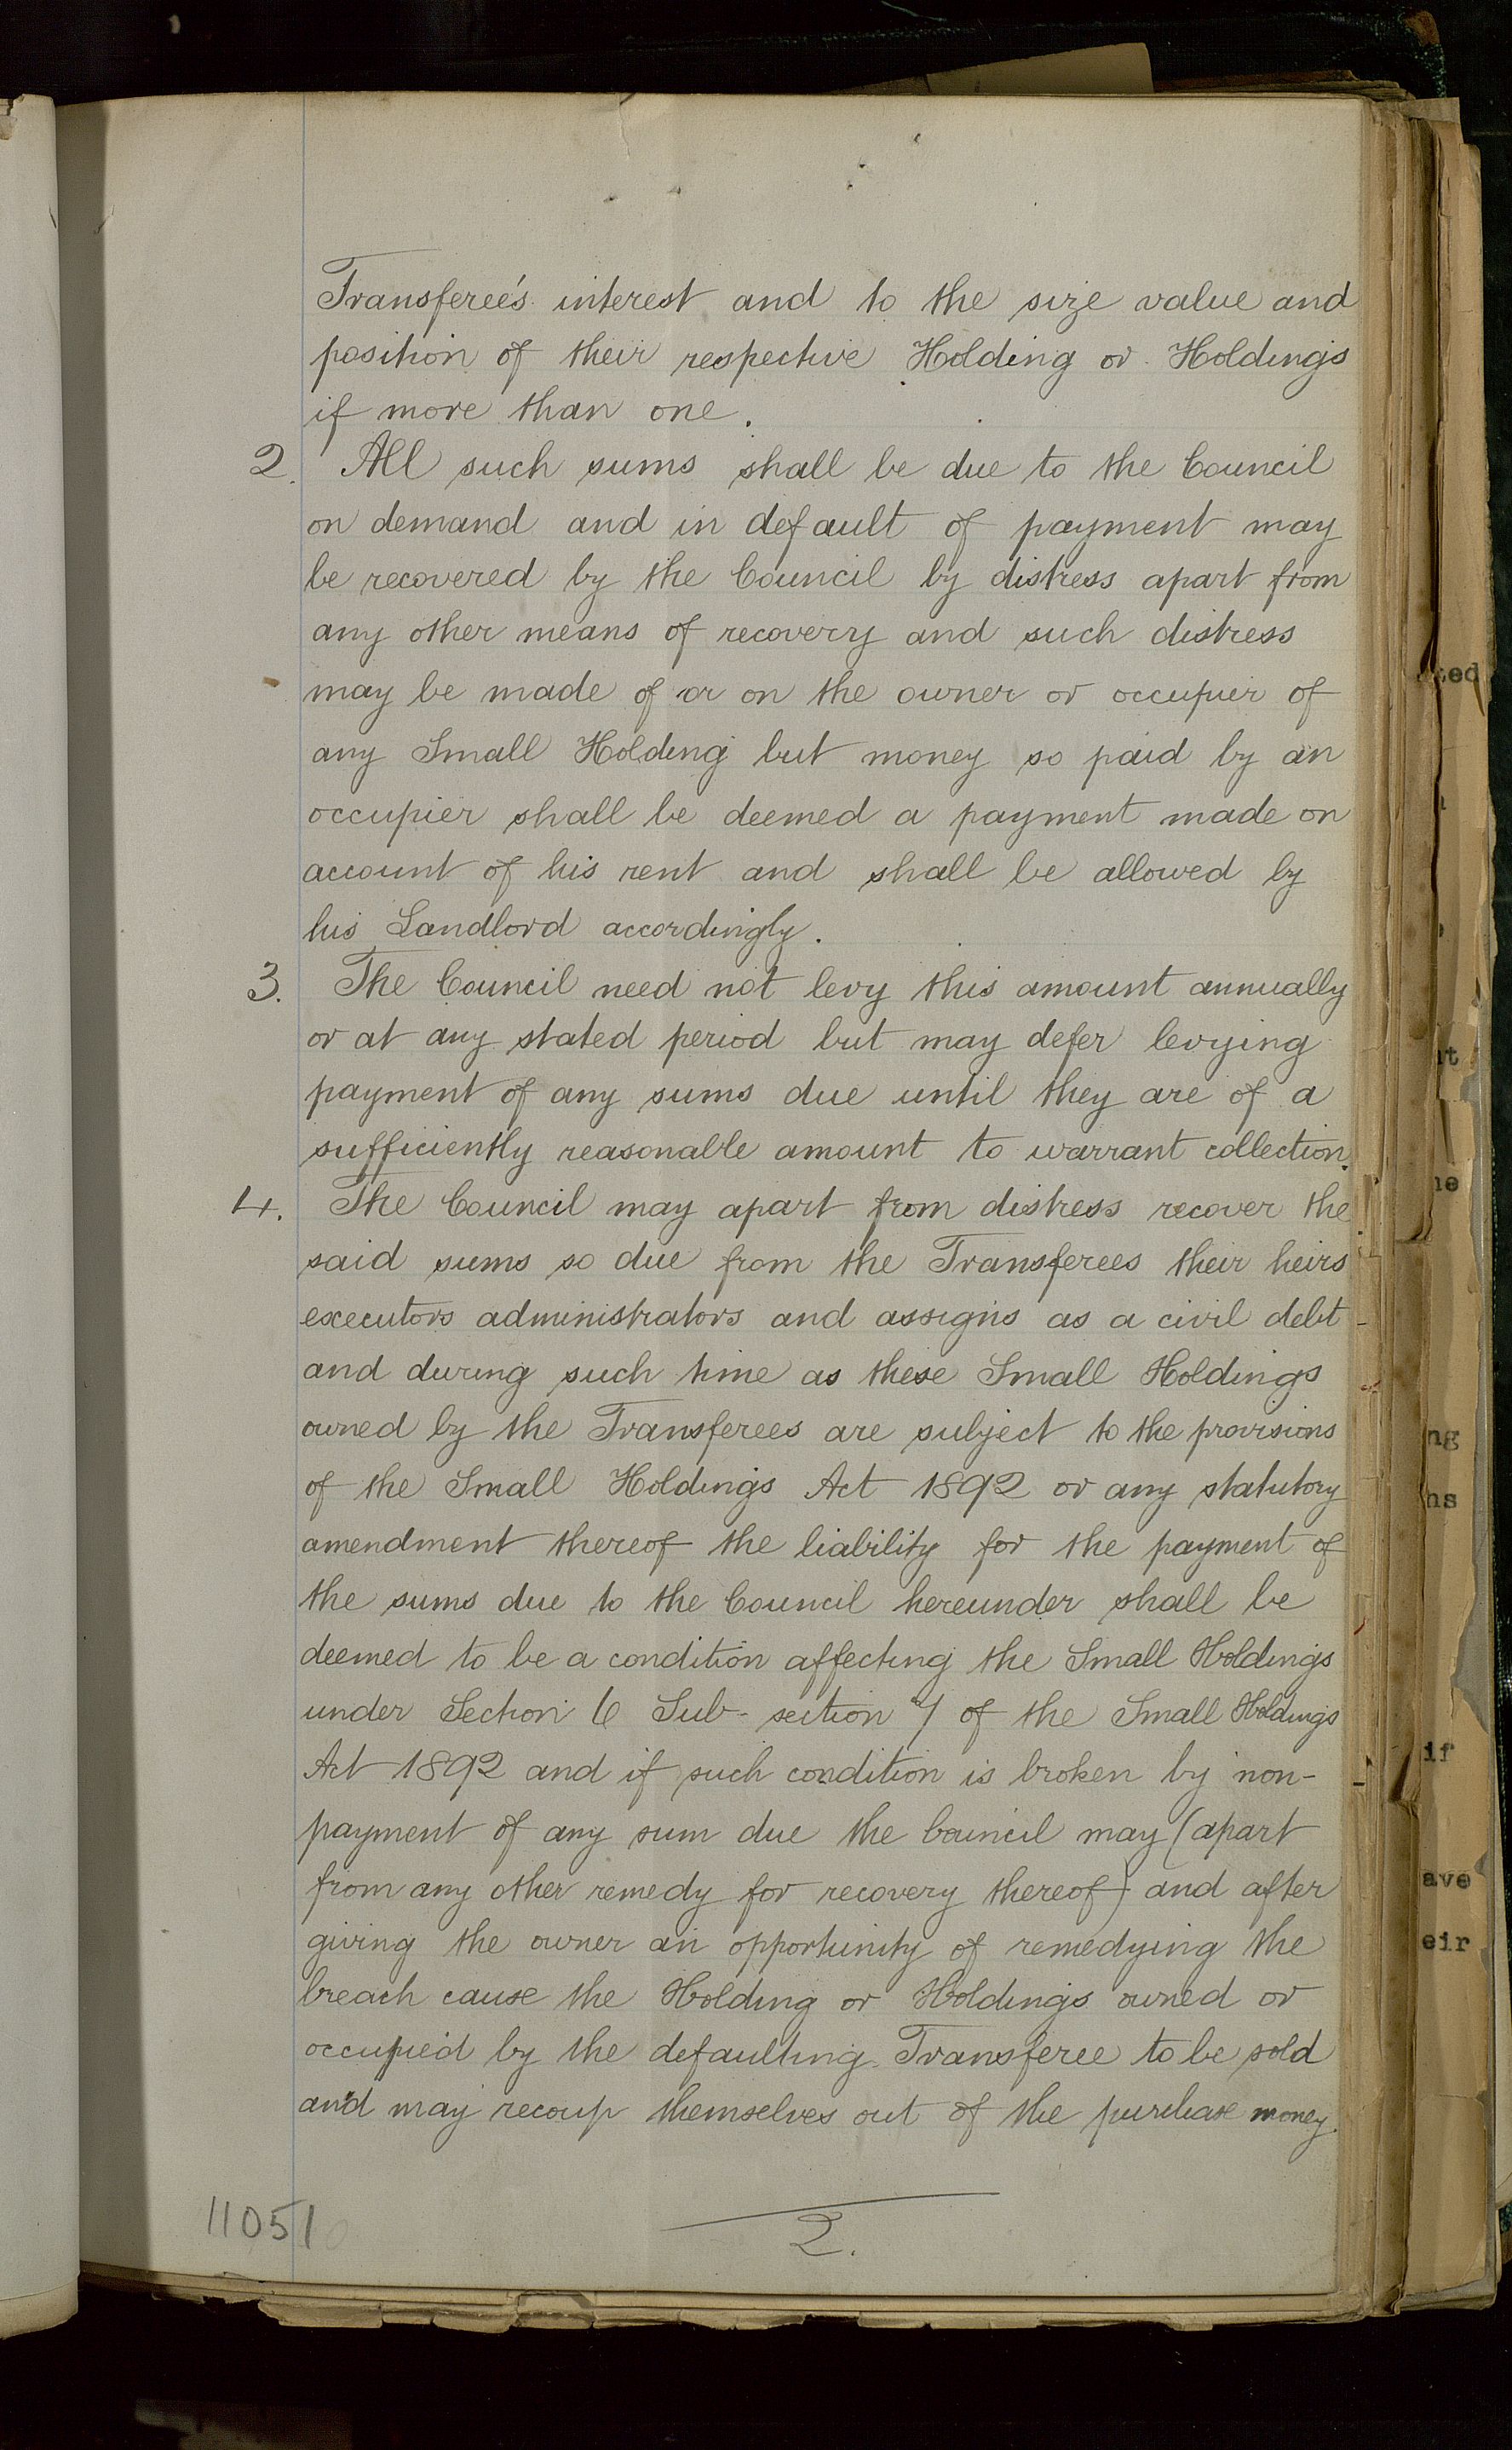 Transferee's interest and to the size value and
position of their respective Holding or Holdings
if more than one.
2. All such sums shall be due to the Council
on demand and in default of payment may
be recovered by the Council by distress apart from
any other means of recovery and such distress
may be made of or on the owner or occupier of
any Small Holding but money so paid by an
occupier shall be deemed a payment made on
account of his rent and shall be allowed by
his Landlord accordingly.
3. The Council need not levy this amount annually
or at any stated period but may defer levying
payment of any sums due until they are of a
sufficiently reasonable amount to warrant collection.
4. The Council may apart from distress recover the
said sums so due from the Transferees their heirs
executors administrators and assigns as a civil debt
and during such time as these Small Holdings
owned by the Transferees are subject to the provisions
of the Small Holdings Act 1892 or any statutory
amendment thereof the liability for the payment of
the sums due to the Council hereunder shall be
deemed to be a condition affecting the Small Holdings
under Section 6 Sub-section 7 of the Small Holdings
Act 1892 and if such condition is broken by non-
payment of any sum due the Council may (apart
from any other remedy for recovery thereof) and after
giving the owner an opportunity of remedying the
breach cause the Holding or Holdings owned or
occupied by the defaulting Transferee to be sold
and may recoup themselves out of the purchase money.
11051
2.
ted
it
he
ng
ns
if
ave
eir